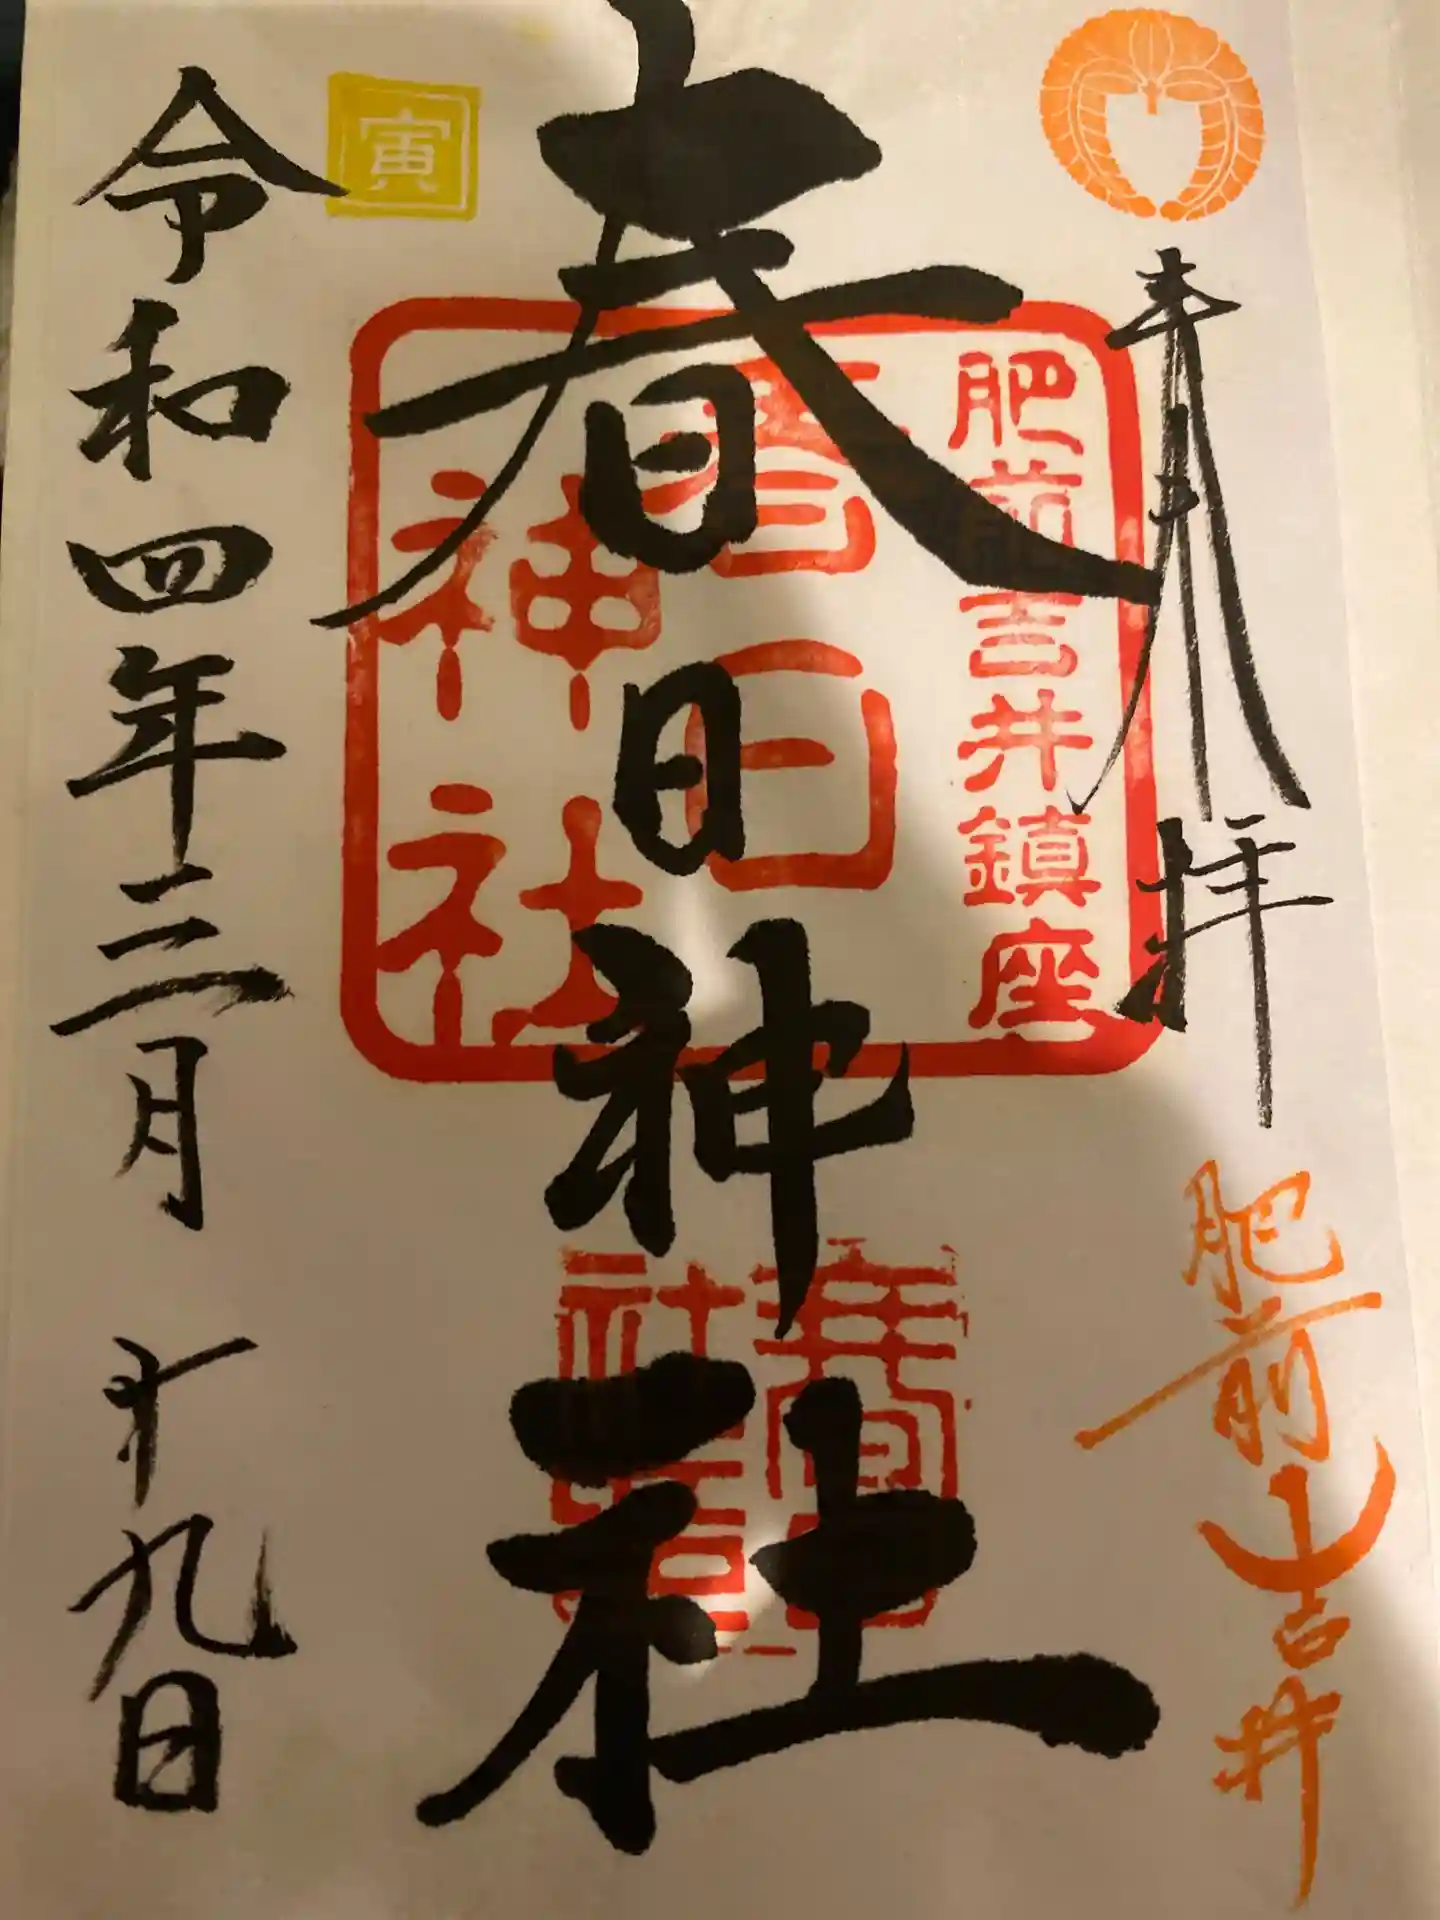 奉拝
肥前吉井
肥前吉井鎮座
春日神社
春日
神社
寅
令和四年三月十九日